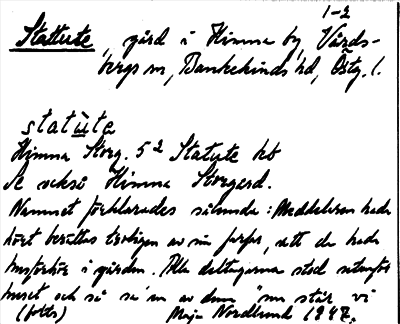 1-2
Stattute, gård i Himna by, Vårds-
bergs sn, Bankekinds hd, Östg. l.
statùte
Himna Storg. 5² Statute hb
Se också Himna Storgård.
Namnet förklarades sålunda: Meddelaren hade
hört berättas av sin farfar, att de hade
husförhör i gården. Alla deltagarna stod utanför
huset och så sa' en av dem "nu står vi
Maja Nordlund 1947.